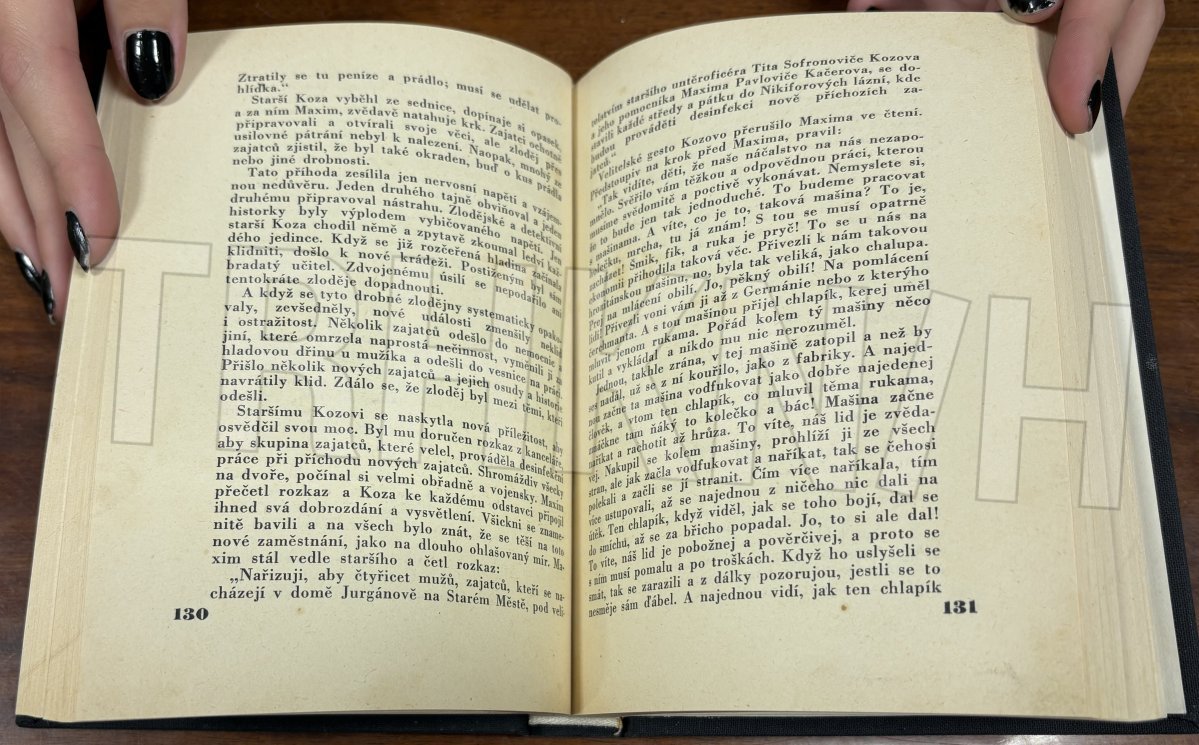 Ztratily se tu peníze a prádlo; musí se udělat pro-
hlídka.“
Starší Koza vyběhl ze sednice, dopínaje si opasek,
a za ním Maxim, zvědavě natahuje krk. Zajatci ochotně
připravovali a otvírali svoje věci, ale zloděj přes
usilovné pátrání nebyl k nalezení. Naopak, mnohý ze
zajatců zjistil, že byl také okraden, buď o kus prádla
nebo jiné drobnosti.
Tato příhoda zesílila jen nervosní napětí a vzájem-
nou nedůvěru. Jeden druhého tajně obviňoval a jeden
druhému připravoval nástrahu. Zlodějské a detektivní
historky byly výplodem vybičovaného napětí. Jen
starší Koza chodil němě a zpytavě zkoumal ledví kaž-
dého jedince. Když se již rozčeřená hladina začínala
klidniti, došlo k nové krádeži. Postiženým byl sám
bradatý učitel. Zdvojenému úsilí se nepodařilo ani
tentokráte zloděje dopadnouti.
A když se tyto drobné zlodějny systematicky opako-
valy, zevšedněly, nové události zmenšily neklid
i ostražitost. Několik zajatců odešlo do nemocnic a
jiní, které omrzela naprostá nečinnost, vyměnili ji za
hladovou dřinu u mužíka a odešli do vesnice na práci.
Přišlo několik nových zajatců a jejich osudy a historie
navrátily klid. Zdálo se, že zloděj byl mezi těmi, kteří
odešli.
Staršímu Kozovi se naskytla nová příležitost, aby
osvědčil svou moc. Byl mu doručen rozkaz z kanceláře,
aby skupina zajatců, které velel, prováděla desinfekční
práce při příchodu nových zajatců. Shromáždiv všecky
na dvoře, počínal si velmi obřadně a vojensky. Maxim
přečetl rozkaz a Koza ke každému odstavci připojil
ihned svá dobrozdání a vysvětlení. Všickni se zname-
nitě bavili a na všech bylo znát, že se těší na toto
nové zaměstnání, jako na dlouho ohlašovaný mír. Ma-
xim stál vedle staršího a četl rozkaz:
„Nařizuji, aby čtyřicet mužů, zajatců, kteří se na-
cházejí v domě Jurgánově na Starém Městě, pod veli-
130
telstvím staršího untěroficéra Tita Sofronoviče Kozova
a jeho pomocníka Maxima Pavloviče Kačerova, se do-
stavili každé středy a pátku do Nikiforových lázní, kde
budou prováděti desinfekci nově příchozích za-
jatců.“
Velitelské gesto Kozovo přerušilo Maxima ve čtení.
Předstoupiv na krok před Maxima, pravil:
„Tak vidíte, děti, že naše náčalstvo na nás nezapo-
mnělo. Svěřilo vám těžkou a odpovědnou práci, kterou
musíme svědomitě a poctivě vykonávat. Nemyslete si,
že to bude jen tak jednoduché. To budeme pracovat
s mašinama. A víte, co je to, taková mašina? To je,
holečku, mrcha, tu já znám! S tou se musí opatrně
zacházet! Šmik, fik, a ruka je pryč! To se u nás na
ekonomii přihodila taková věc. Přivezli k nám takovou
hroźitánskou mašinu, no, byla tak veliká, jako chalupa.
Prej na mlácení obilí. Jo, pěkný obilí! Na pomlácení
lidí! Přivezli voni vám ji až z Germánie nebo z kterýho
čerchmanta. A s tou mašinou přijel chlapík, kerej uměl
mluvit jenou rukama. Pořád kolem tý mašiny něco
kutil a vykládal a nikdo mu nic nerozuměl.
Jednou, takhle zrána, v tej mašině zatopil a než by
ses nadál, už se z ní kouřilo, jako z fabriky. A najed-
nou začne ta mašina vodfukovat jako dobře najedenej
člověk, a vtom ten chlapík, co mluvil těma rukama,
zmáčkne tam ňáký to kolečko a bác! Mašina začne
naříkat a rachotit až hrůza. To víte, náš lid je zvěda-
vej. Nakupil se kolem mašiny, prohlíží ji ze všech
stran, ale jak začla vodfukovat a naříkat, tak se čehosi
polekali a začli se jí stranit. Čím více naříkala, tím
více ustupovali, až se najednou z ničeho nic dali na
útěk. Ten chlapík, když viděl, jak se toho bojí, dal se
do smíchu, až se za břicho popadal. Jo, to si ale dal!
To víte, náš lid je pobožnej a pověrčivej, a proto se
s ním musí pomalu a po troškách. Když ho uslyšeli se
smát, tak se zarazili a z dálky pozorujou, jestli se to
nesměje sám ďábel. A najednou vidí, jak ten chlapík
131